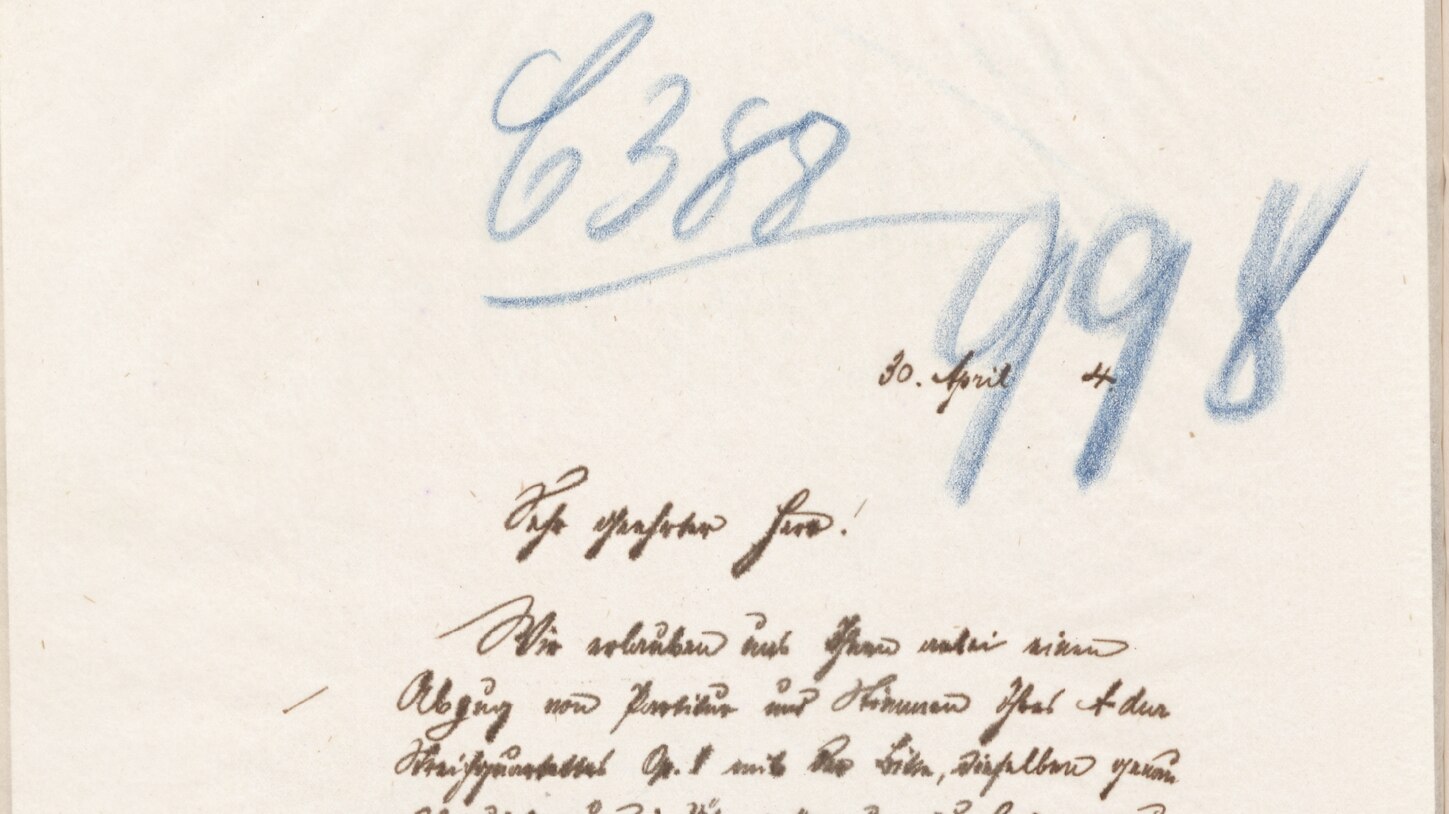 C388
998
30. April 4.
Sehr geehrter Herr!
Wir erlauben uns Ihnen anbei einen
Abzug von Partitur und Stimmen Ihres A dur
Streichquartettes Op. mit der Bitte, dieselben genau